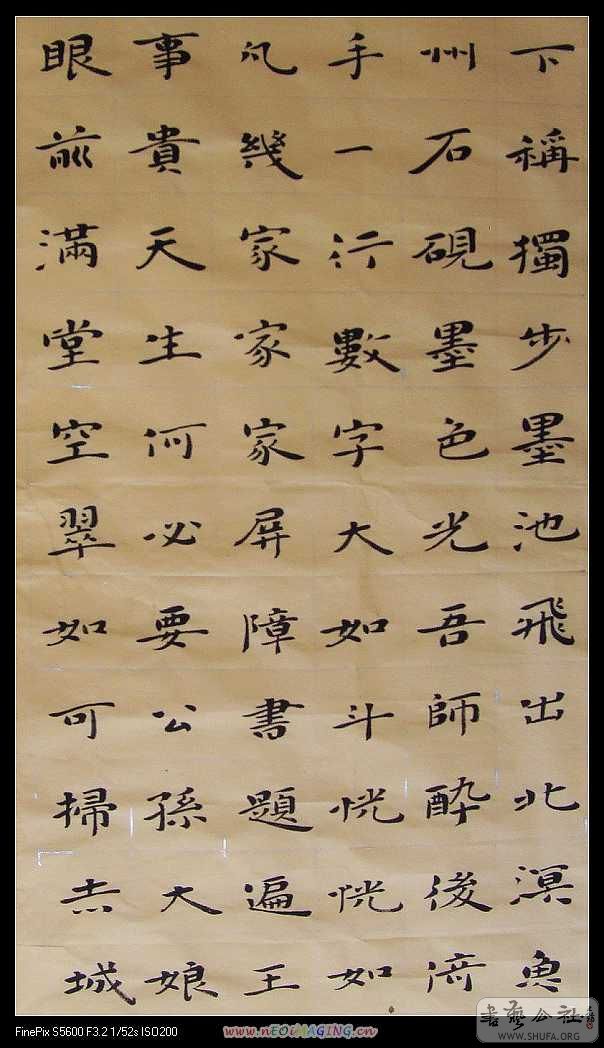 下稱獨步墨池飛出北溟魚
州石硯墨色光吾師醉後倚
手一行數字大如斗恍恍如
凡幾家家家屏障書題遍王
事貴天生何必要公孫大娘
眼前滿堂空翠如可掃赤城
書藝公社
WWW.SHUFA.ORG
FinePix S5600 F3.2 1/52s ISO200
www.nEOiMAGING.cn